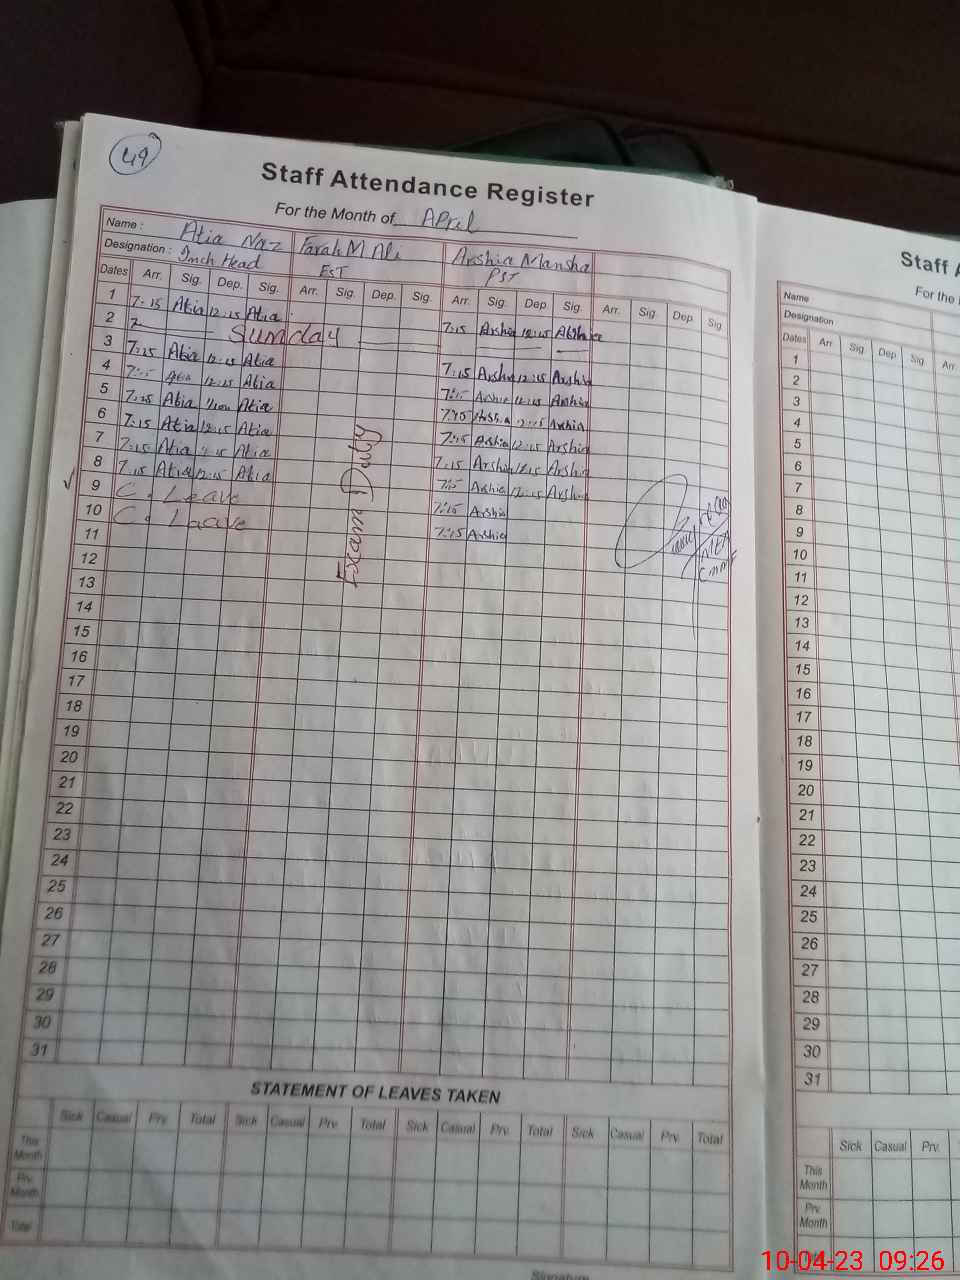 49
Staff Attendance Register
For the Month of April
Name : Atia Naz Farah M Ali Arshia Mansha
Designation : Inch Head EST PST
Dates Arr. Sig. Dep. Sig. Arr. Sig. Dep. Sig. Arr. Sig. Dep. Sig. Arr. Sig. Dep. Sig.
1 7:15 Atia 12:15 Atia 7:15 Arshia 12:15 Arshia
2 Sunday
3 7:15 Atia 12:15 Atia 7:15 Arshia 12:15 Arshia
4 7:15 Atia 12:15 Atia 7:15 Arshia 12:15 Arshia
5 7:15 Atia Atia 7:15 Arshia 12:15 Arshia
6 7:15 Atia 12:15 Atia 7:15 Arshia 12:15 Arshia
7 7:15 Atia 12:15 Atia 7:15 Arshia 12:15 Arshia
8 7:15 Atia 12:15 Atia 7:15 Arshia 12:15 Arshia
9 C. Leave 7:15 Arshia
10 C. Leave 7:15 Arshia
11
12
13
14
15
16
17
18
19
20
21
22
23
24
25
26
27
28
29
30
31
Exam Duty
STATEMENT OF LEAVES TAKEN
Sick Casual Prv. Total Sick Casual Prv. Total Sick Casual Prv. Total Sick Casual Prv. Total
This Month
Prv. Month
Total
Signature
Staff A
For the
Name
Designation
Dates Arr Sig Dep Sig. Arr
1
2
3
4
5
6
7
8
9
10
11
12
13
14
15
16
17
18
19
20
21
22
23
24
25
26
27
28
29
30
31
Sick Casual Prv. Total
This Month
Prv. Month
10-04-23 09:26